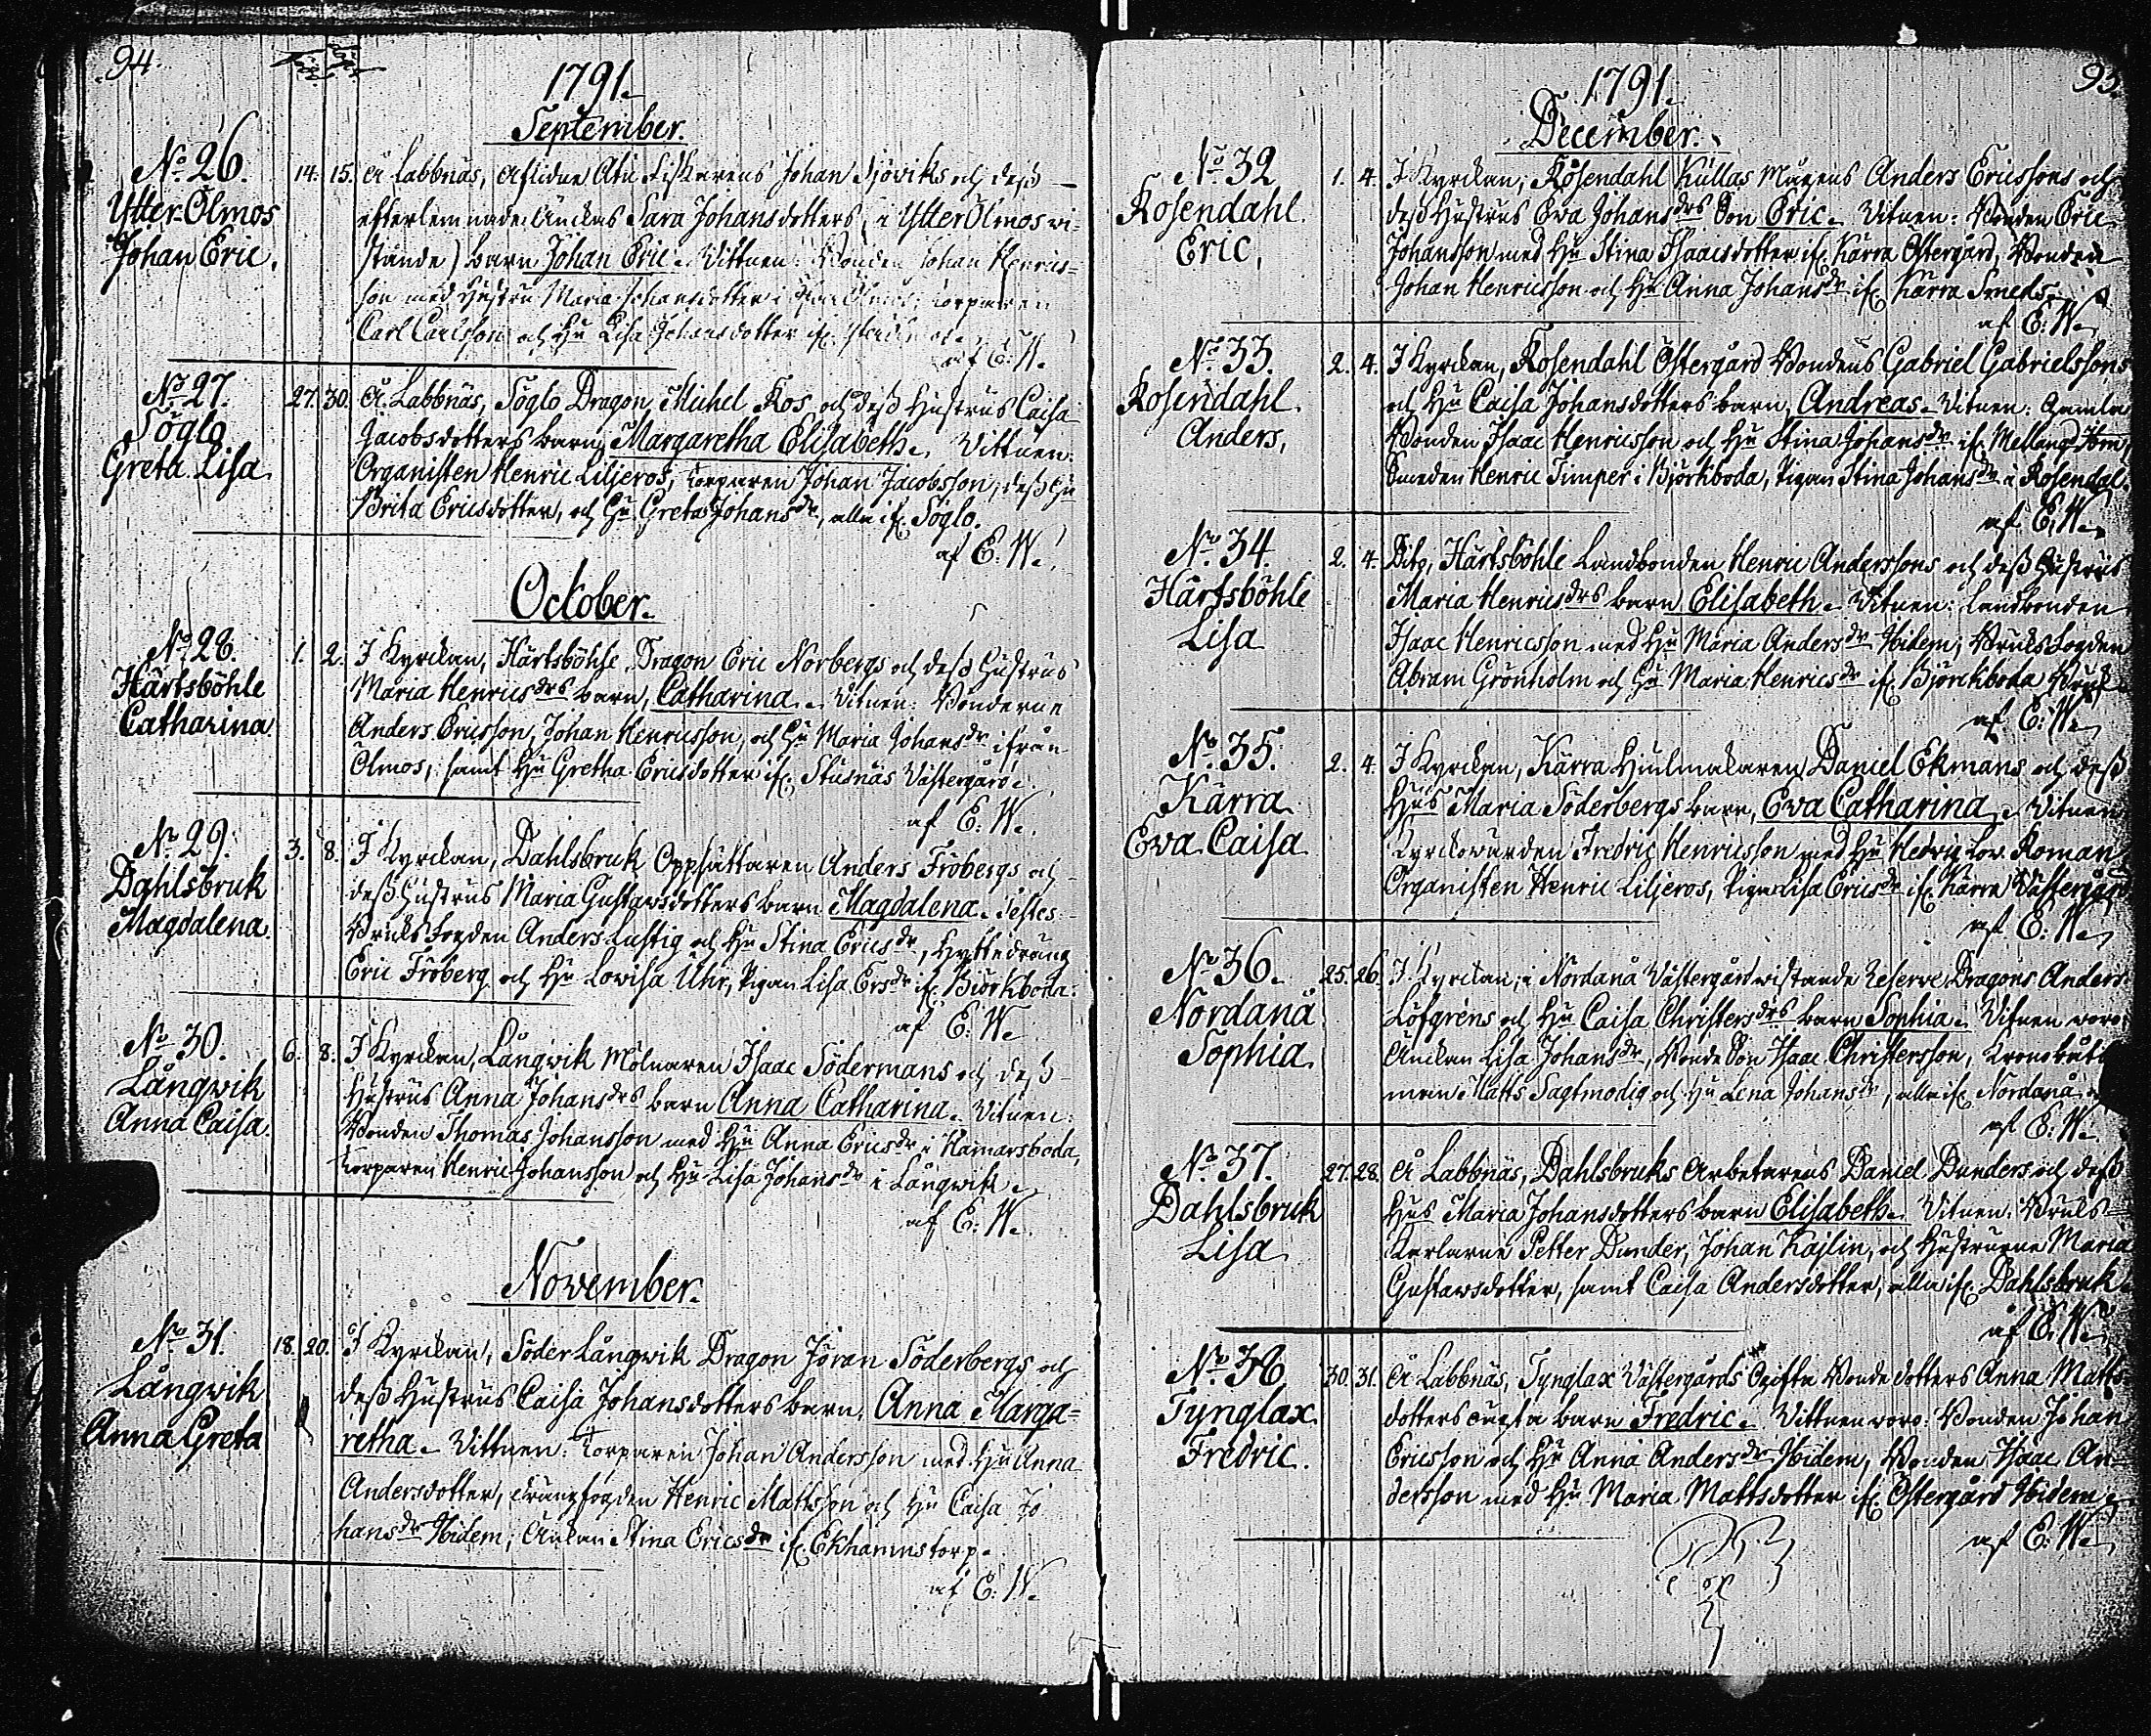 94.
1791.
September.
No 26.
Ytter Ölmos
Johan Eric.
14. 15. Å Labbnäs, Aflidne Fiskarens Johan Sjöviks och dess
efterlemnade Änckas Sara Johansdotters, (i Ytter Ölmos vi-
stande) barn Johan Eric. Vittnen: Bonden Johan Henrics-
son med Hustru Maria Johansdotter i Ölmos, Torparen
Carl Carlsson och Hu Lisa Johansdotter if.
af E. W.
No 27.
Söglo
Greta Lisa
27. 30. Å Labbnäs, Söglo Dragon Michel Kos och dess Hustrus Caisa
Jacobsdotters barn, Margaretha Elisabeth. Vittnen:
Organisten Henric Liljeros, Torparen Johan Jacobsson, dess Hu
Brita Ericsdotter, och Hu Greta Johansdr, alla if. Söglo.
af E. W.
October.
No 28.
Härtsböhle
Catharina
1. 2. I Kyrckan, Härtsböhle Dragon Eric Norbergs och dess Hustrus
Maria Henricsdrs barn, Catharina. Vitnen: Bönderne
Anders Ericsson, Johan Henricsson, och Hu Maria Johansdr ifrån
Ölmos, samt Hu Gretha Ericsdotter if. Stusnäs Västergård.
af E. W.
No 29.
Dahlsbruk
Magdalena
3. 8. I Kyrckan, Dahlsbruk Oppsättaren Anders Frobergs och
dess Hustrus Maria Gustavsdotters barn Magdalena. Testes:
Bruksfogden Anders Lustig och Hu Stina Ericsdr, Hyttedräng
Eric Froberg och Hu Lovisa Uhr, Pigan Lisa Ersdr if. Björkboda.
af E. W.
No 30.
Långwik
Anna Caisa
6. 8. I Kyrckan, Långwik Mölnaren Isaac Södermans och dess
Hustrus Anna Johansdrs barn Anna Catharina. Vitnen:
Bonden Thomas Johansson med Hu Anna Ericsdr i Hamarsboda,
Torparen Henric Johansson och Hu Lisa Johansdr i Långwik.
af E. W.
November.
No 31.
Långwik
Anna Greta
18. 20. I Kyrckan, Söder Långwik Dragon Jöran Söderbergs och
dess Hustrus Caisa Johansdotters barn, Anna Marga=
retha. Vittnen: Torparen Johan Andersson med Hu Anna
Andersdotter, Drängfogden Henric Mattsson och Hu Caisa Jo
hansdr Ibidem; Änckan Stina Ericsdr if. Ekhamnstorp.
af E. W.
95.
1791.
December.
No 32
Rosendahl
Eric,
1. 4. I Kyrckan, Rosendahl Kullas Mågens Anders Ericssons och
dess Hustrus Eva Johansdrs Son Eric. Vitnen: Bonden Eric
Johansson med Hu Stina Isaacsdotter if. Kärra Östergård, Bonden
Johan Henricsson och Hu Anna Johansdr if. Kärra Smeds.
af E. W.
No 33.
Rosendahl
Anders,
2. 4. I Kyrckan, Rosendahl Östergård Bondens Gabriel Gabrielssons
och Hu Caisa Johansdotters barn, Andreas. Vitnen: Gamla
Bonden Isaac Henricsson och Hu Stina Johansdr if. Mellangd Ibm,
Smeden Henric Timper i Björkboda, Pigan Stina Johansdr i Rosendal.
af E. W.
No 34.
Härtsböhle
Lisa
2. 4. Dito, Härtsböhle Landbonden Henric Anderssons och dess Hustrus
Maria Henricsdrs barn Elisabeth. Vitnen: Landbonden
Isaac Henricsson med Hu Maria Andersdr Ibidem, Bruksfogden
Abram Grönholm och Hu Maria Henricsdr if. Björckboda Bruk.
af E. W.
No 35.
Kärra
Eva Caisa
2. 4. I Kyrckan, Kärra Hjulmakaren Daniel Ekmans och dess
Hus Maria Söderbergs barn, Eva Catharina. Vitnen
Kyrckowärden Fredric Henricsson med Hu Hedvig Lov. Roman
Organisten Henric Liljeros, Pigan Lisa Ericsdr if. Kärra Västergård
af E. W.
No 36.
Nordanå
Sophia
25. 26. I Kyrckan, i Nordanå Västergård vistande Reserve Dragons Anders
Löfgrens och Hu Caisa Christersdrs barn Sophia. Vitnen voro:
Änckan Lisa Johansdr, Bonde Son Isaac Christersson, Kronobåts
man Matts Sagtmodig och Hu Lena Johansdr, alla if. Nordanå.
af E. W.
No 37.
Dahlsbruk
Lisa
27. 28. Å Labbnäs, Dahlsbruks Arbetarens Daniel Dunders och dess
Hus Maria Johansdotters barn Elisabeth. Vitnen: Bruks=
Karlarne Petter Dunder, Johan Kajlin, och Hustruerne Maria
Gustavsdotter, samt Caisa Andersdotter, alla if. Dahlsbruk.
af E. W.
No 38
Tynglax
Fredric.
30. 31. Å Labbnäs, Tynglax Västergårds Ogifta Bonde dotters Anna Matts
dotters oägta barn Fredric. Vittnen voro: Bonden Johan
Ericsson och Hu Anna Andersdr Ibidem, Bonden Isaac An-
dersson med Hu Maria Mattsdotter if. Östergård Ibidem.
af E. W.